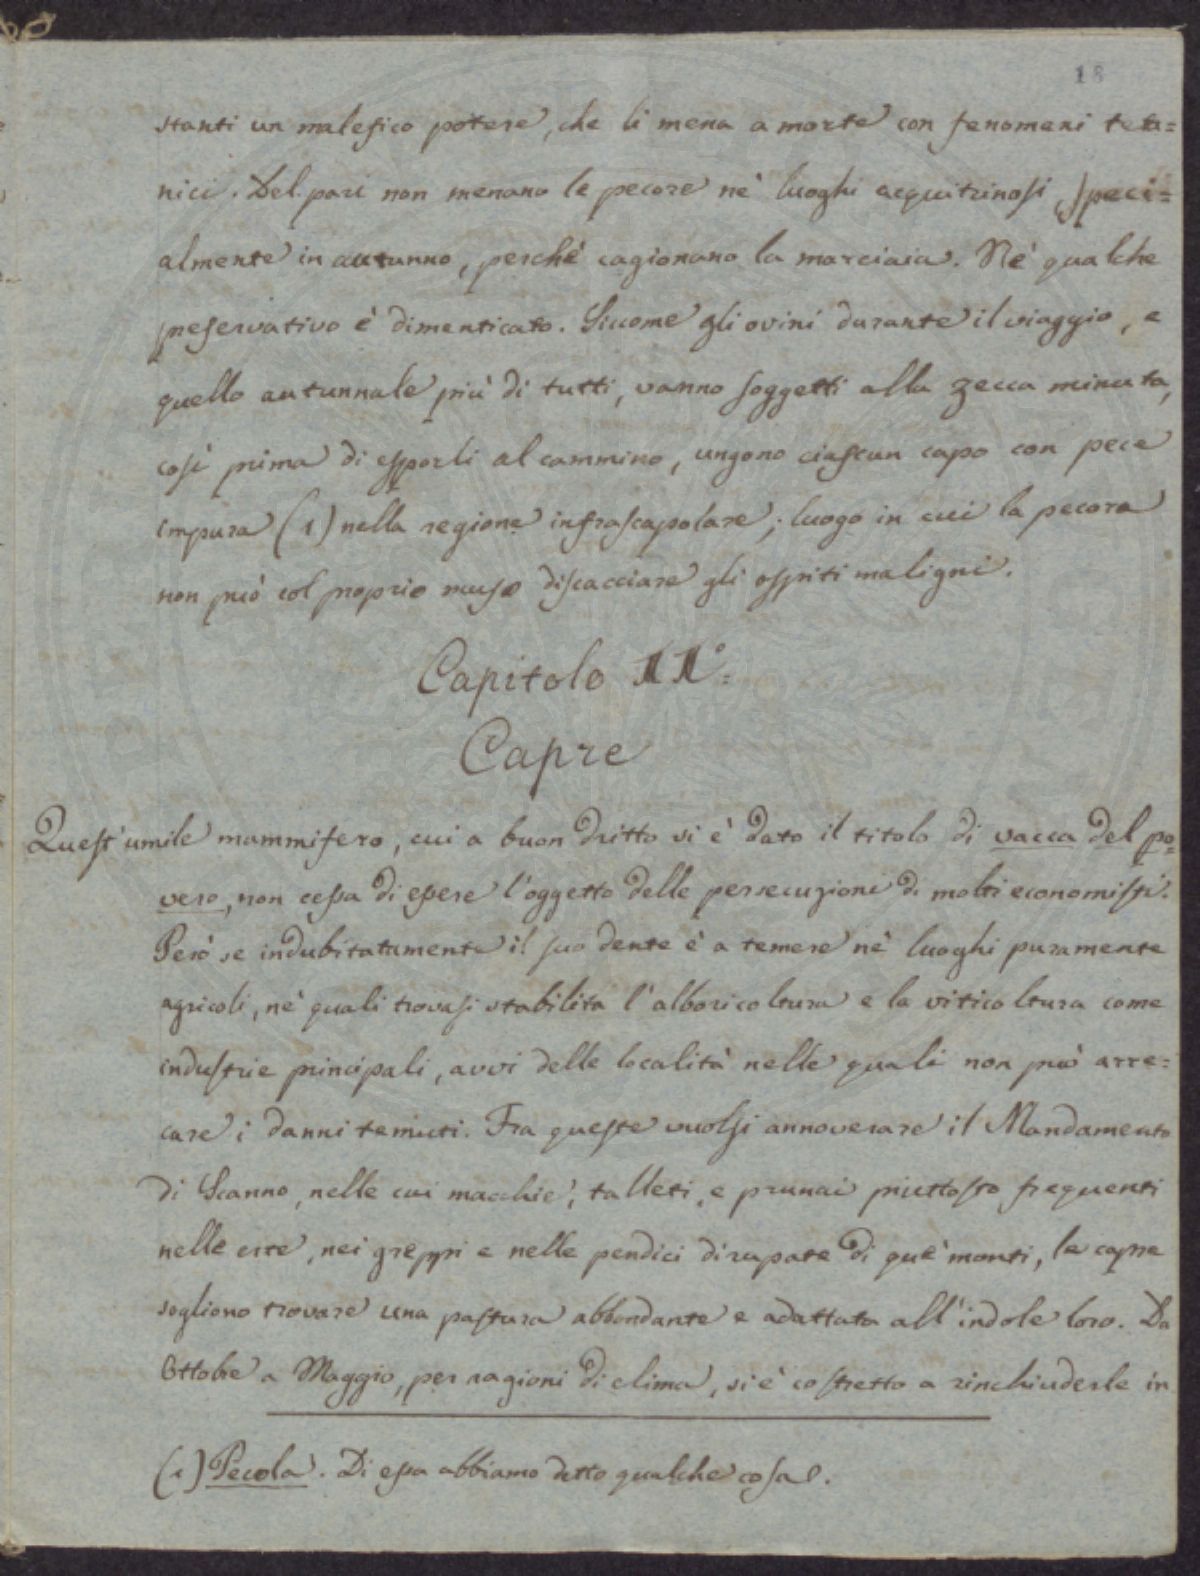 18
stanti un malefico potere, che li mena a morte con fenomeni teta=
nici. Del pari non menano le pecore nè luoghi acquitrinosi, speci=
almente in autunno, perchè cagionano la marciaia. Nè qualche
preservativo è dimenticato. Siccome gli ovini durante il viaggio, e
quello autunnale più di tutti, vanno soggetti alla zecca minuta,
così prima di esporli al cammino, ungono ciascun capo con pece
impura (1) nella regione infrascapolare; luogo in cui la pecora
non può col proprio muso discacciare gli ospiti maligni.
Capitolo II°.
Capre
Quest'umile mammifero, cui a buon dritto si è dato il titolo di vacca del po=
vero, non cessa di essere l'oggetto delle persecuzioni di molti economisti.
Però se indubitatamente il suo dente è a temere nè luoghi puramente
agricoli, nè quali trovasi stabilita l'alboricoltura e la viticoltura come
industrie principali, avvi delle località nelle quali non può arre=
care i danni temuti. Fra queste vuolsi annoverare il Mandamento
di Scanno, nelle cui macchie, talleti, e prunai piuttosto frequenti
nelle erte, nei greppi e nelle pendici dirupate di què monti, le capre
sogliono trovare una pastura abbondante e adattata all'indole loro. Da
Ottobre a Maggio, per ragioni di clima, si è costretto a rinchiuderle in
(1) Pecola. Di essa abbiamo detto qualche cosa.